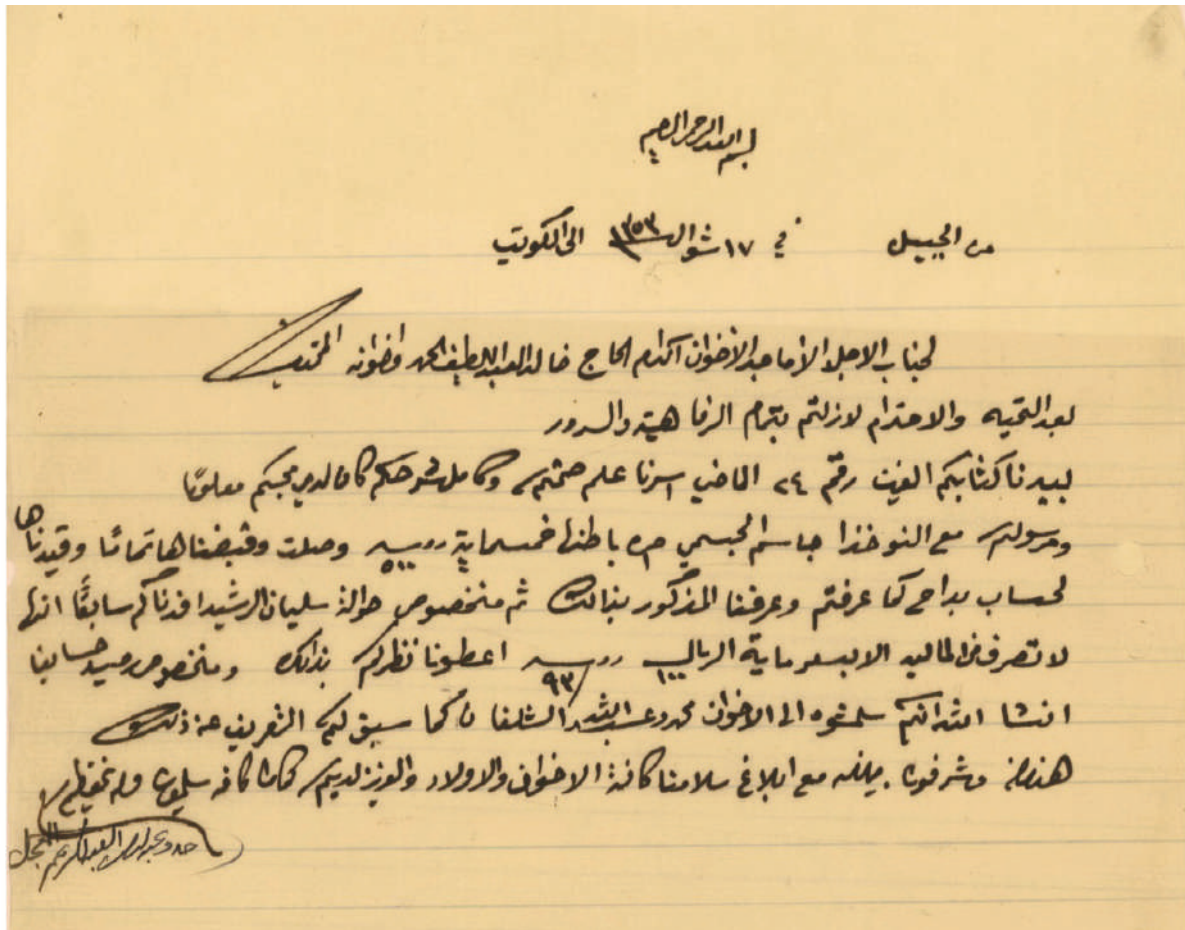 بسم الله الرحمن الرحيم
من الجبيل في ١٧ شوال ١٣٥٣ الى الكويت
لجناب الاجل الاماجد الأخوان اكرام الحاج خالد العبد اللطيف الحمد واخوانه المحترمين
بعد التحيه والاحترام لازلتم بتمام الرفاهية والسرور
بيدنا كتابكم رقم ٢٤ الماضي اسرنا علم صحتكم وكامل شرحكم كان لدى محبكم معلومًا
ومرسولكم مع النوخذا جاسم صره باطنها خمسماية ٥٠٠ روبيه وصلت وقبضناها تمامًا وقيدناها
لحساب كما عرفتم وعرفنا المذكور بذالك ثم منخصوص حوالة سليمان الرشيد افدناكم سابقًا انها
لا تصرف من الماليه الا بسعر ماية الريال ١٠٠ روبيه ٩٣ اعطونا نظركم بذالك ومنخصوص رصيد حسابنا
انشا الله انكم سلمتوه الى الاخوان محمد وعبدالله الشلفان كما سبق لكم التعريف عن ذلك
هذا مع ابلاغ سلامنا كافة الاخوان والاولاد والعزيز لديكم كمامنا كافه